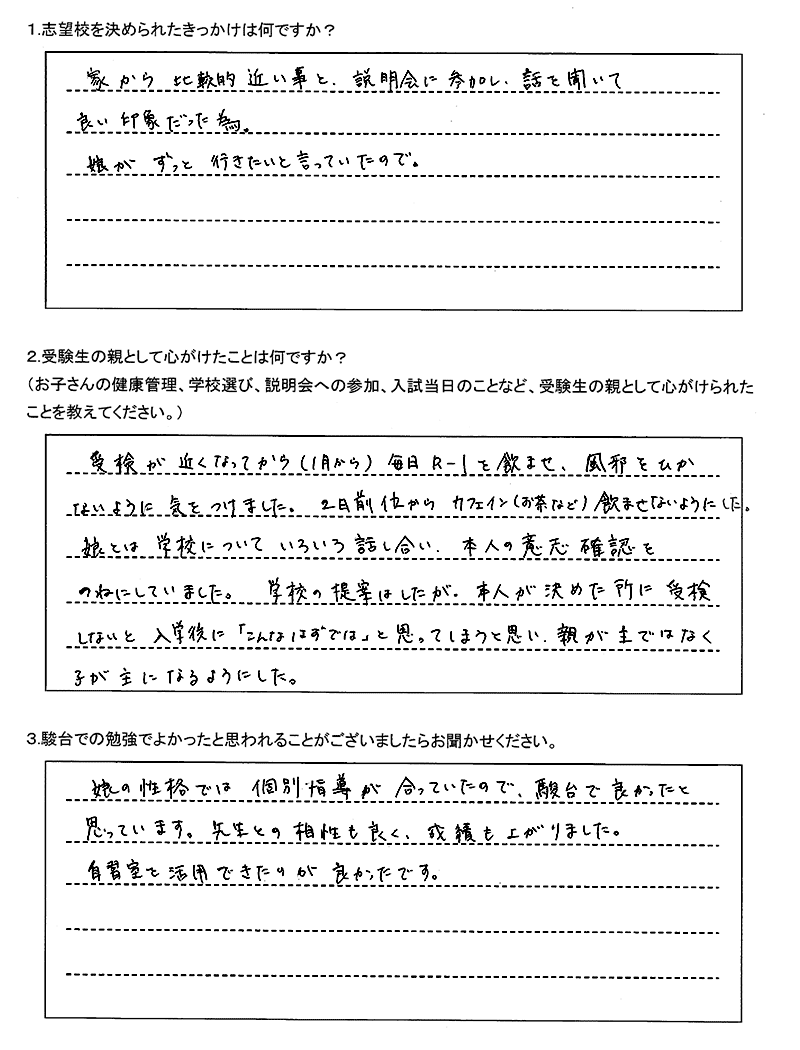 1.志望校を決められたきっかけは何ですか？
家から比較的近い事と、説明会に参加し、話を聞いて
良い印象だった為。
娘がずっと行きたいと言っていたので。
2.受験生の親として心がけたことは何ですか？
（お子さんの健康管理、学校選び、説明会への参加、入試当日のことなど、受験生の親として心がけられた
ことを教えてください。）
受検が近くなってから（1月から）毎日R-1を飲ませ、風邪をひか
ないように気をつけました。2日前位からカフェイン（お茶など）飲ませないようにした。
娘とは学校についていろいろ話し合い、本人の意志確認を
つねにしていました。学校の提案はしたが、本人が決めた所に受検
しないと入学後に「こんなはずでは」と思ってしまうと思い、親が主ではなく
子が主になるようにした。
3.駿台での勉強でよかったと思われることがございましたらお聞かせください。
娘の性格では個別指導が合っていたので、駿台で良かったと
思っています。先生との相性も良く、成績も上がりました。
自習室を活用できたのが良かったです。